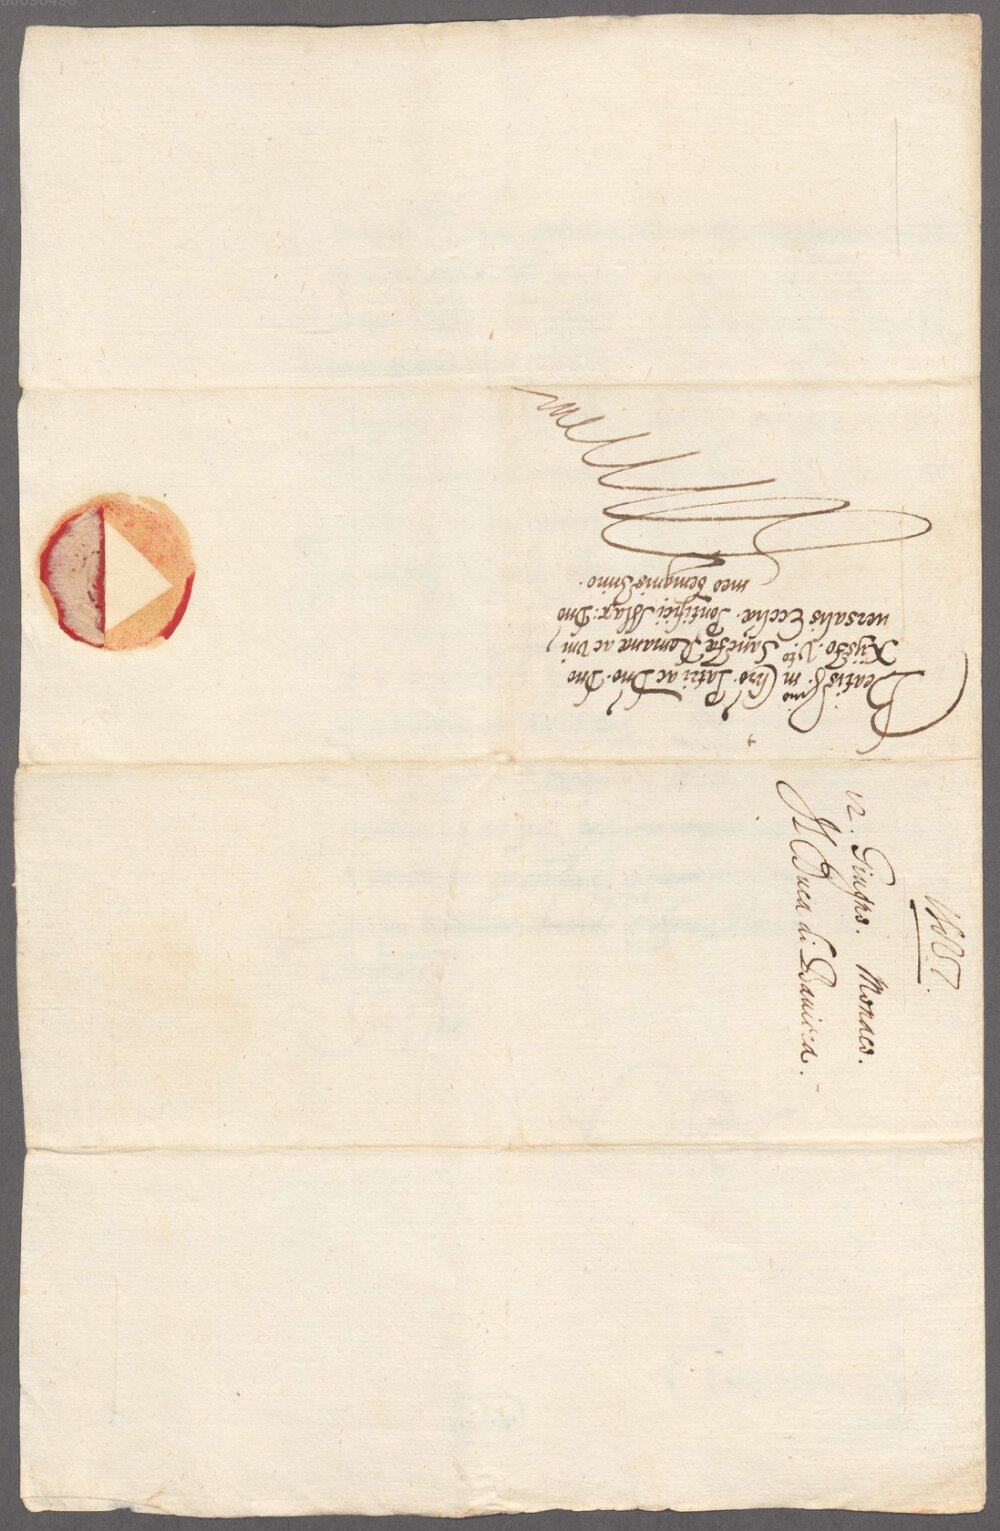 Beatiss.mo in Chro. Patri ac Dno. Dno
Xysto. V.to Sanctæ Romanæ ac Uni
uersalis Eccliæ. Pontifici Max: Dno
meo benigniss.imo.
1585.
12. Giugno. Monaco.
Il Duca di Baviera.